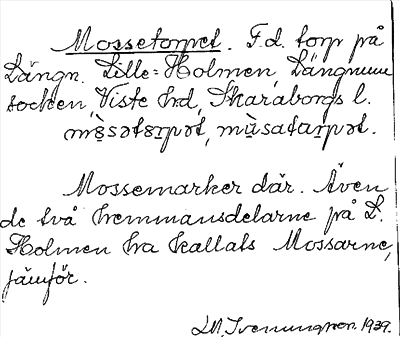 Mossetorpet. F.d. torp på
Längn. Lille-Holmen, Längnums
socken, Viste hd, Skaraborgs l.
mòsətɒrpət, mùsatarpət.
Mossemarker där. Även
de två hemmansdelarne på L.
Holmen ha kallats Mossarne,
jämför.
1939.